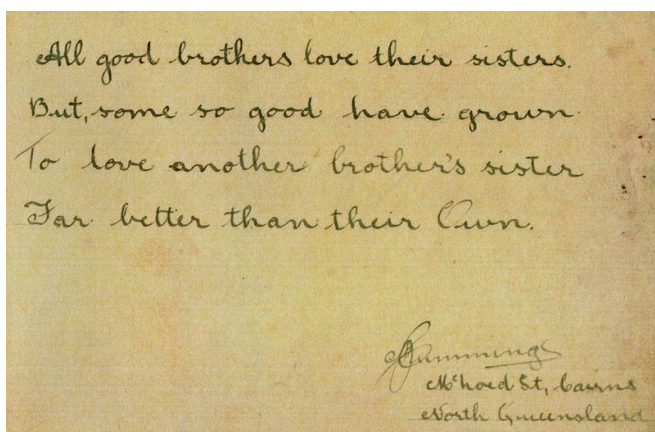 All good brothers love their sisters.
But, some so good have grown
To love another brother's sister
Far better than their Own.
Cumming
St, Cairns
North Queensland